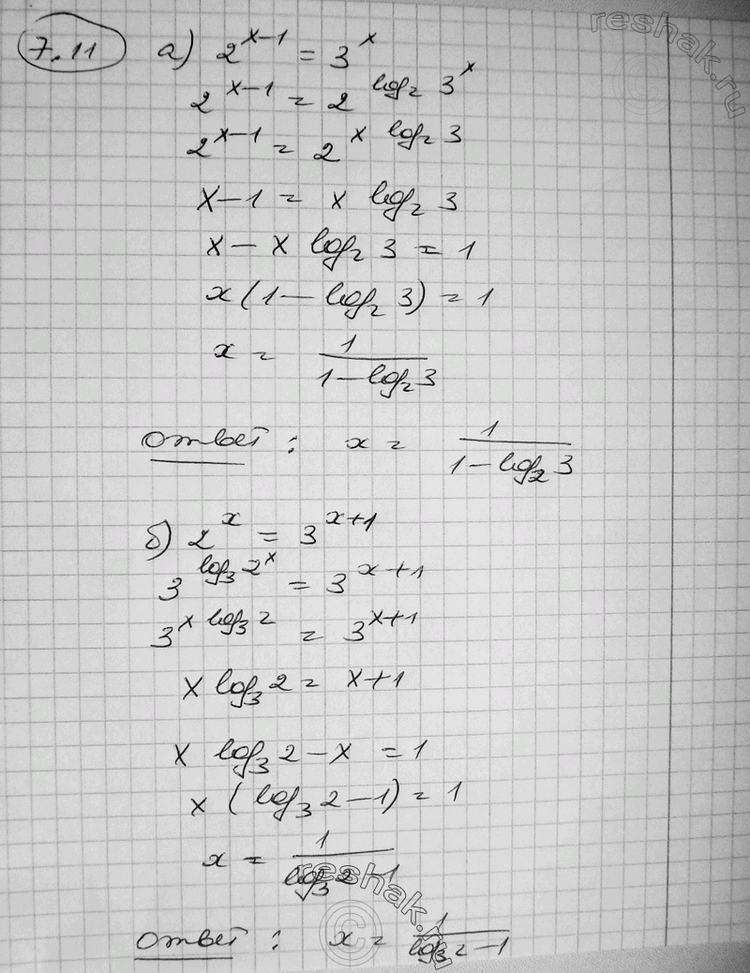 reshak.ru
7.11 а) 2^{x-1} = 3^x
2^{x-1} = 2^{log₂ 3^x}
2^{x-1} = 2^{x log₂ 3}
x - 1 = x log₂ 3
x - x log₂ 3 = 1
x(1 - log₂ 3) = 1
x = 1/(1 - log₂ 3)
Ответ: x = 1/(1 - log₂ 3)
б) 2^x = 3^{x+1}
3^{log₃ 2^x} = 3^{x+1}
3^{x log₃ 2} = 3^{x+1}
x log₃ 2 = x + 1
x log₃ 2 - x = 1
x (log₃ 2 - 1) = 1
x = 1/(log₃ 2 - 1)
reshak.ru
Ответ: x = 1/(log₃ 2 - 1)